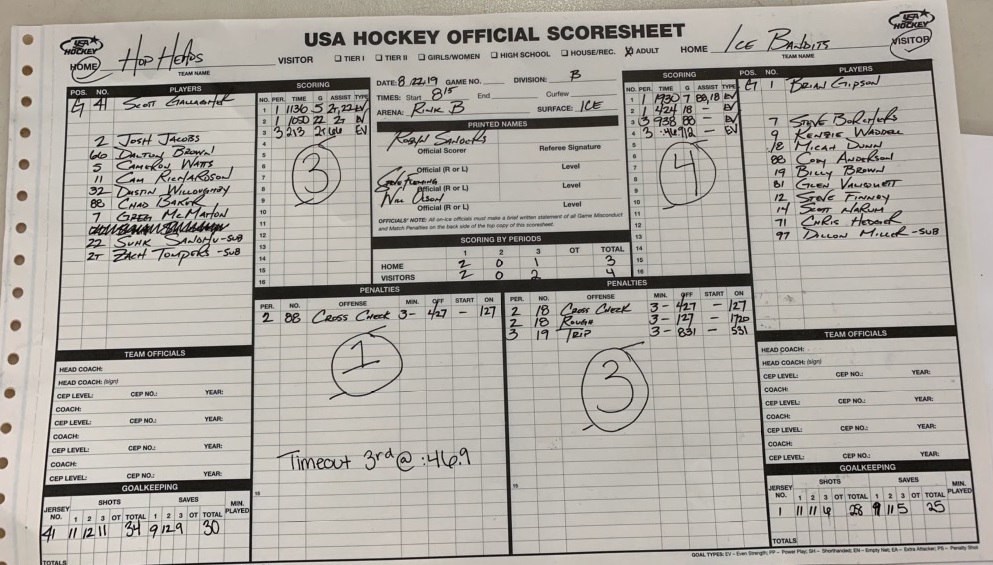 USA HOCKEY OFFICIAL SCORESHEET
USA HOCKEY
HOME
Hop Heads
TEAM NAME
VISITOR
TIER I
TIER II
GIRLS/WOMEN
HIGH SCHOOL
HOUSE/REC.
X ADULT
HOME
Ice Bandits
TEAM NAME
USA HOCKEY
VISITOR
POS. NO. PLAYERS
G 41 Scott Gallagher
2 Josh Jacobs
66 Dalton Brown
5 Cameron Watts
11 Cam Richardson
32 Dustin Willoughby
88 Chad Baker
7 Greg McMahon
22 Sukh Sandhu -SUB
27 Zach Tompers -SUB
SCORING
NO. PER. TIME G ASSIST TYPE
1 1 1130 5 27,22 EV
2 1 1050 22 27 EV
3 3 213 27 66 EV
4
5
6
7
8
9
10
11
12
13
14
15
3
DATE: 8.22.19 GAME NO. DIVISION: B
TIMES: Start 8 15 End Curfew
ARENA: Rink B SURFACE: ICE
PRINTED NAMES
Robyn Sanders
Official Scorer Referee Signature
Official (R or L) Level
Steve Fleming
Official (R or L) Level
Will Olson
Official (R or L) Level
OFFICIALS' NOTE: All on-ice officials must make a brief written statement of all Game Misconduct
and Match Penalties on the back side of the top copy of this scoresheet.
SCORING BY PERIODS
1 2 3 OT TOTAL
HOME 2 0 1 3
VISITORS 2 0 2 4
SCORING
NO. PER. TIME G ASSIST TYPE
1 1 1930 7 88,18 EV
2 1 424 18 - EV
3 3 938 88 - EV
4 3 :46.9 12 - EV
5
6
7
8
9
10
11
12
13
14
15
16
4
POS. NO. PLAYERS
G 1 Brian Gipson
7 Steve Borchers
9 Kenzie Waddell
18 Micah Dunn
88 Cody Anderson
19 Billy Brown
81 Glen
12 Steve Finney
14 Scott Narum
71 Chris
97 Dillon Miller -SUB
PENALTIES
PER. NO. OFFENSE MIN. OFF START ON
2 88 Cross Check 3- 427 - 127
1
Timeout 3rd @ :46.9
15
PENALTIES
PER. NO. OFFENSE MIN. OFF START ON
2 18 Cross Check 3- 427 - 127
2 18 Rough 3- 127 - 1720
3 19 Trip 3- 831 - 531
3
15
TEAM OFFICIALS
HEAD COACH:
HEAD COACH: (sign)
CEP LEVEL: CEP NO.: YEAR:
COACH:
CEP LEVEL: CEP NO.: YEAR:
COACH:
CEP LEVEL: CEP NO.: YEAR:
COACH:
CEP LEVEL: CEP NO.: YEAR:
GOALKEEPING
JERSEY NO. SHOTS SAVES MIN. PLAYED
1 2 3 OT TOTAL 1 2 3 OT TOTAL
41 11 12 11 34 9 12 9 30
TOTALS
TEAM OFFICIALS
HEAD COACH:
HEAD COACH: (sign)
CEP LEVEL: CEP NO.: YEAR:
COACH:
CEP LEVEL: CEP NO.: YEAR:
COACH:
CEP LEVEL: CEP NO.: YEAR:
COACH:
CEP LEVEL: CEP NO.: YEAR:
GOALKEEPING
JERSEY NO. SHOTS SAVES MIN. PLAYED
1 2 3 OT TOTAL 1 2 3 OT TOTAL
1 11 11 6 28 9 11 5 25
TOTALS
GOAL TYPES: EV - Even Strength; PP - Power Play; SH - Shorthanded; EN - Empty Net; EA - Extra Attacker; PS - Penalty Shot